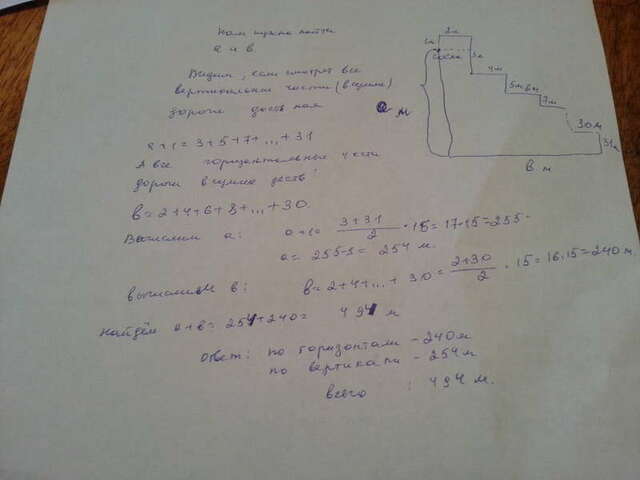 Нам нужно найти
a и в
Видим, если смотреть все
вертикальные части (в сумме)
дороги
a м
a+1=3+5+7+...+31
А все горизонтальные части
дороги в сумме
в=2+4+6+8+...+30.
Вычислим a: a+1= 3+31/2 · 15=17·15=255.
a= 255-1= 254 м.
вычислим в: в=2+4+...+30= 2+30/2 · 15=16·15=240 м.
Найдём a+в= 254+240= 494 м
Ответ: по горизонтали - 240м
по вертикали - 254м
всего : 494 м.
1м
2м
3м
4м
5м
6м
7м
30м
31м
в м